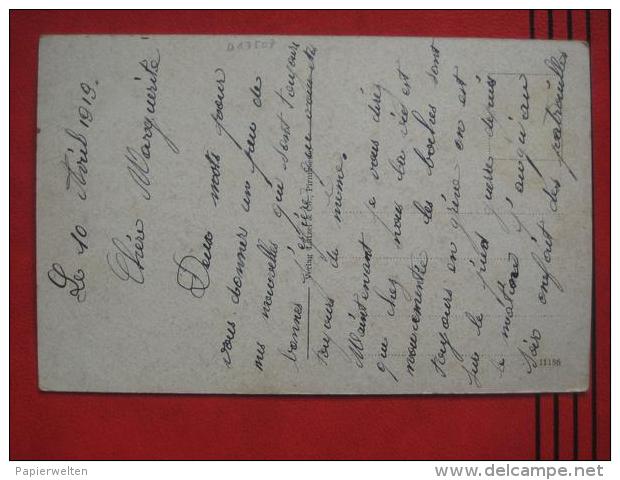 Le 10 Avril 1919.
Chère Marguerite
Deux mots pour
vous donner un peu de
mes nouvelles qui sont toujours
bonnes j'espère que vous êtes
toujours de même.
Maintenant je vous dirai
que chez nous la vie est
mouvementée les boches sont
toujours en grève on est
sur le pied guerre depuis
le matin jusqu'au
soir on fait des patrouilles
11156
Papierwelten
www.delcampe.net